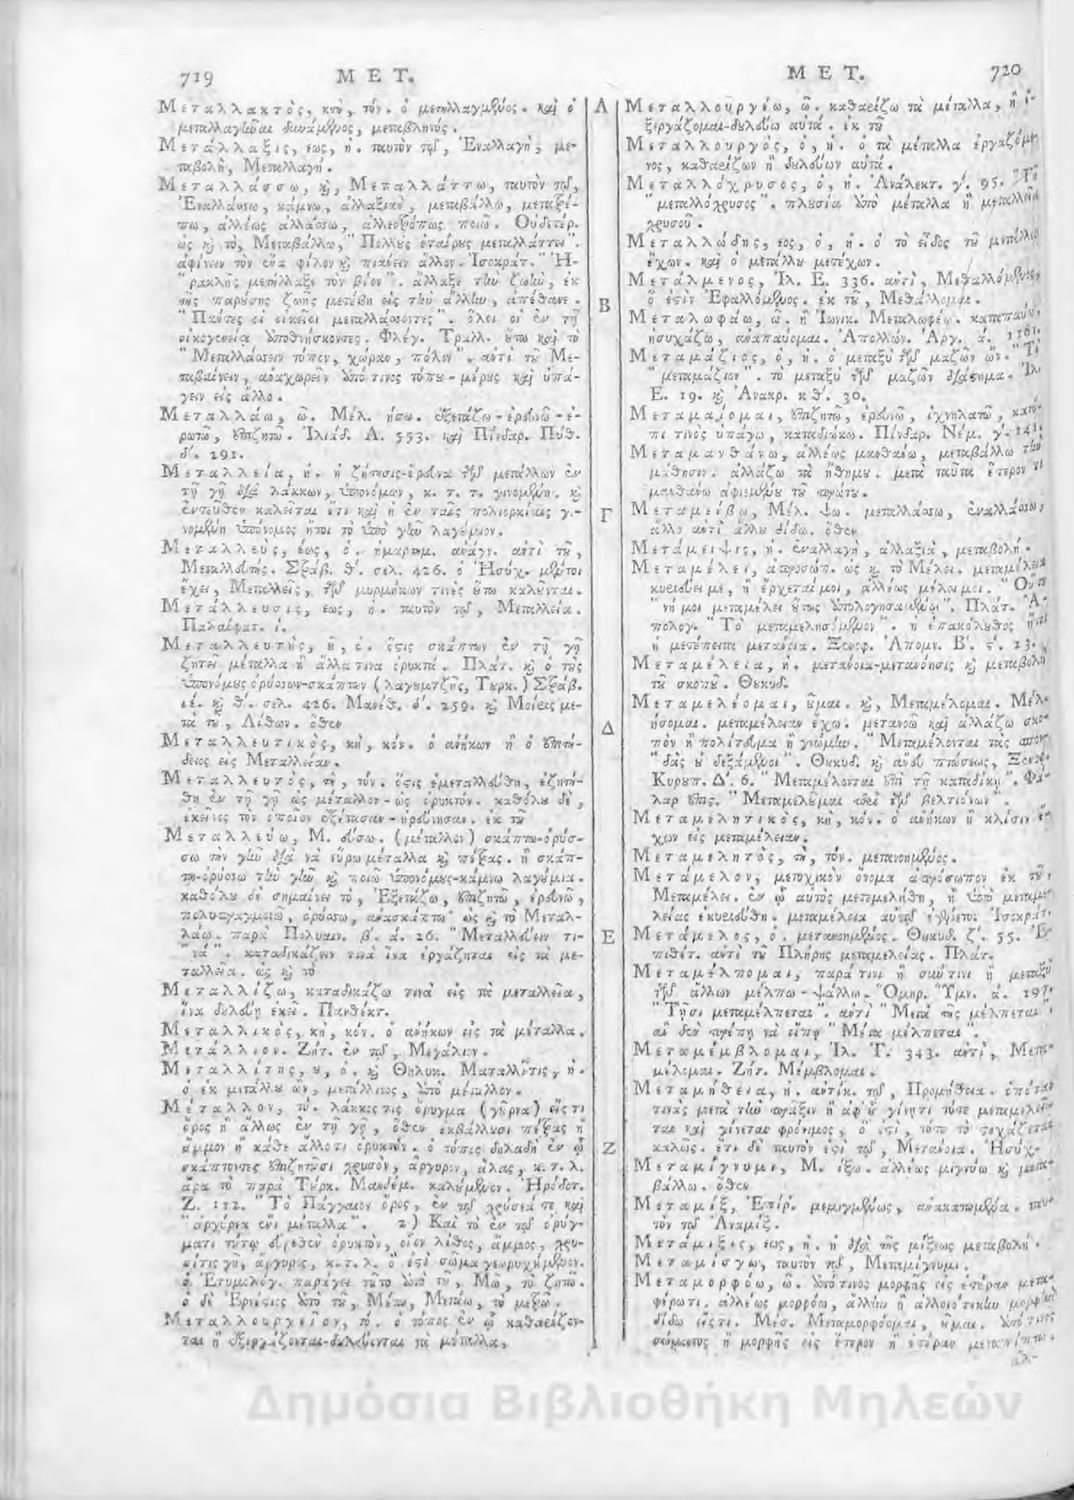 719 ΜΕΤ.
Μεταλλακτὸς, κτὴ, τόν. ὁ μεταλλαγμένος. καὶ ὁ
μεταλλαγῆναι δυνάμενος, μεταβλητός.
Μετάλλαξις, εως, ἡ. ταυτὸν τῷ, Ἐναλλαγὴ, με-
ταβολὴ, Μεταλλαγή.
Μεταλλάσσω, καὶ, Μεταλλάττω, ταυτὸν τῷ,
Ἐναλλάσσω, κάμνω ἀλλαξιὰν, μεταβάλλω,
ὡς καὶ τὸ, Μεταβάλλω, " Πολλοὺς ἑταίρους μεταλλάττει".
ἀφίνειν τὸν ἕνα φίλον καὶ πιάνειν ἄλλον. Ἰσοκράτ. " Ἡ-
" ρακλῆς μετήλλαξε τὸν βίον". ἄλλαξε τὴν ζωὴν, ἐκ
τῆς παρούσης ζωῆς μετέβη εἰς τὴν ἄλλην, ἀπέθανε.
" Πάντες οἱ οἰκεῖοι μεταλλάσσοντες". ὅλοι οἱ ἐν τῇ
οἰκογενείᾳ ἀποθνήσκοντες. Φλέγ. Τραλλ. οὕτω καὶ τὸ
" Μεταλλάσσειν τόπον, χώραν, πόλιν". ἀντὶ τοῦ Με-
ταβαίνειν, ἀναχωρεῖν ἀπό τινος τόπου - μέρους καὶ ὑπά-
γειν εἰς ἄλλο.
Μεταλλάω, ῶ. Μέλ. ήσω. ἐξετάζω - ἐρευνῶ - ἐ-
ρωτῶ, ἐπιζητῶ. Ἰλιάδ. Α. 553. καὶ Πίνδαρ. Πύθ.
δ'. 291.
Μεταλλεία, ἡ. ἡ ζήτησις-ἔρευνα τῶν μετάλλων ἐν
τῇ γῇ διὰ λάκκων, ὑπονόμων, κ. τ. τ. γινομένη. καὶ
ἐντεῦθεν καλεῖται ἔτι καὶ ἡ ἐν ταῖς πολιορκίαις γι-
νομένη ὑπόνομος ἤτοι τὸ ὑπὸ γῆν λαγούμιον.
Μεταλλεὺς, έως, ὁ. ἡμαρτημ. ἀνάγν. ἀντὶ τοῦ,
Μεταλλευτής. Στράβ. θ'. σελ. 426. ὁ Ἡσύχ. μέντοι
ἔχει, Μεταλλεῖς, τῶν μυρμήκων τινὲς οὕτω καλοῦνται.
Μετάλλευσις, εως, ἡ. ταυτὸν τῷ, Μεταλλεία.
Παλαίφατ. ί.
Μεταλλευτὴς, οῦ, ὁ. ὅστις σκάπτων ἐν τῇ γῇ
ζητεῖ μέταλλα ἢ ἄλλα τινα ὀρυκτά. Πλάτ. καὶ ὁ τοὺς
ὑπονόμους ὀρύσσων-σκάπτων ( λαγουμτζῆς, Τουρκ. ) Στράβ.
ιέ. καὶ θ'. σελ. 426. Μανέθ. δ'. 259. καὶ Μοῖρις με-
τὰ τοῦ, Λίθων. ὅθεν
Μεταλλευτικὸς, κὴ, κόν. ὁ ἀνήκων ἢ ὁ ἐπιτή-
δειος εἰς Μεταλλείαν.
Μεταλλευτὸς, τὴ, τόν. ὅστις ἐμεταλλεύθη, ἐζητή-
θη ἐν τῇ γῇ ὡς μέταλλον - ὡς ὀρυκτόν. καθόλου δὲ,
ἐκεῖνος τὸν ὁποῖον ἐξέτασαν - ἠρεύνησαν. ἐκ τοῦ
Μεταλλεύω, Μ. εύσω. ( μέταλλον ) σκάπτω-ὀρύσ-
σω τὴν γῆν διὰ νὰ εὕρω μέταλλα καὶ πέτρας. ἢ σκάπ-
τω-ὀρύσσω τὴν γῆν καὶ ποιῶ ὑπονόμους-κάμνω λαγούμια.
καθόλου δὲ σημαίνει τὸ, Ἐξετάζω, ἐπιζητῶ, ἐρευνῶ,
πολυπραγμονῶ, ὀρύσσω, ἀνασκάπτω ὡς καὶ τὸ Μεταλ-
λάω. παρὰ Πολυαίν. β'. ά. 26. " Μεταλλεύειν τι-
" νά". καταδικάζειν τινὰ ἵνα ἐργάζηται εἰς τὰ με-
ταλλεῖα. ὡς καὶ τὸ
Μεταλλίζω, καταδικάζω τινὰ εἰς τὰ μεταλλεῖα,
ἵνα δουλεύῃ ἐκεῖ. Πανδέκτ.
Μεταλλικὸς, κὴ, κόν. ὁ ἀνήκων εἰς τὰ μέταλλα.
Μετάλλιον. Ζήτ. ἐν τῷ, Μεγάλιον.
Μεταλλίτης, ου, ὁ. καὶ Θηλυκ. Μεταλλῖτις, ἡ.
ὁ ἐκ μετάλλου ὢν, μετάλλινος, ἀπὸ μέταλλον.
Μέταλλον, τό. λάκκος τις ὄρυγμα ( γούρνα ) εἴς τι
ὄρος ἢ ἄλλως ἐν τῇ γῇ, ὅθεν ἐκβάλλουσι πέτρας ἢ
ἄμμον ἢ κάθε ἄλλο τι ὀρυκτόν. ὁ τόπος δηλαδὴ ἐν ᾧ
σκάπτοντες ἐπιζητοῦσι χρυσὸν, ἄργυρον, ἅλας, κ. τ. λ.
ἄρα τὸ παρὰ Τούρκ. Μαντέμ. καλούμενον. Ἡρόδοτ.
Ζ. 112. " Τὸ Πάγγαιον ὄρος, ἐν τῷ χρύσεά τε καὶ
" ἀργύρεα ἔνι μέταλλα". 2 ) Καὶ τὸ ἐν τῷ ὀρύγ-
ματι τούτῳ εὑρεθὲν ὀρυκτὸν, οἷον λίθος, ἄμμος,
ἄργυρος, κ. τ. λ. ὅ ἐστι σῶμα γεωρυχούμενον.
ὁ Ἐτυμολόγ. παράγει τοῦτο ἀπὸ τοῦ, Μῶ, τὸ ζητῶ.
Μεταλλουργεῖον, τό. ὁ τόπος ἐν ᾧ καθαρίζον-
ται ἢ ἐξεργάζονται-δουλεύονται τὰ μέταλλα.
Α
Β
Γ
Δ
Ε
Ζ
ΜΕΤ. 720
Μεταλλουργέω, ῶ. καθαρίζω τὰ μέταλλα, ἢ ἐ-
ξεργάζομαι-δουλεύω αὐτά. ἐκ τοῦ
Μεταλλουργὸς, ὁ, ἡ. ὁ τὰ μέταλλα ἐργαζόμε-
νος, καθαρίζων ἢ δουλεύων αὐτά.
Μεταλλόχρυσος, ὁ, ἡ. Ἀνάλεκτ. γ'. 95. " Γῆ
" μεταλλόχρυσος". πλουσία ἀπὸ μέταλλα ἢ μεταλλεῖα
χρυσοῦ.
Μεταλλώδης, εος, ὁ, ἡ. ὁ τὸ εἶδος τοῦ μετάλλου
ἔχων. καὶ ὁ μετάλλου μετέχων.
Μετάλμενος, Ἰλ. Ε. 336. ἀντὶ, Μεθαλλόμενος,
ὅ ἐστιν Ἐφαλλόμενος. ἐκ τοῦ, Μεθάλλομαι.
Μεταλωφάω, ῶ. ἢ Ἰωνικ. Μεταλωφέω. καταπαύω,
ἡσυχάζω, ἀναπαύομαι. Ἀπολλων. Ἀργ. ά. 1161.
Μεταμάζιος, ὁ, ἡ. ὁ μεταξὺ τῶν μαζῶν ὤν. " Τὸ
" μεταμάζιον". τὸ μεταξὺ τῶν μαζῶν διάστημα. Ἰλ.
Ε. 19. καὶ Ἀνακρ. κ θ'. 30.
Μεταμαίομαι, ἐπιζητῶ, ἐρευνῶ, ἰχνηλατῶ, κατό-
πι τινὸς ὑπάγω, καταδιώκω. Πίνδαρ. Νέμ. γ'. 141.
Μεταμανθάνω, ἀλλέως μανθάνω, μεταβάλλω τὴν
μάθησιν. ἀλλάζω τὰ ἤθημου. μετὰ ταῦτα ἕτερόν τι
μανθάνω ἀφιεμένου τοῦ πρώτου.
Μεταμείβω, Μέλ. ψω. μεταλλάσσω, ἐναλλάσσω,
ἄλλο ἀντὶ ἄλλου δίδω. ὅθεν
Μετάμειψις, ἡ. ἐναλλαγὴ, ἀλλαξιὰ, μεταβολή.
Μεταμέλει, ἀπροσώπ. ὡς καὶ τὸ Μέλει. μεταμέλεια
κυριεύει με, ἢ ἔρχεταί μοι, ἀλλέως μέλει μοι. " Οὔ τἂν
Πλάτ. Ἀ-
πολογ. " Τὸ μεταμελησόμενον". ἡ ἐπακόλουθος ἤτοι
ἡ μετέπειτα μετάνοια. Ξενοφ. Ἀπομν. Β. ς'. 23.
Μεταμέλεια, ἡ. μετάνοια-μετανόησις καὶ μεταβολὴ
τοῦ σκοποῦ. Θουκυδ.
Μεταμελέομαι, οῦμαι. καὶ, Μεταμέλομαι. Μέλ.
ήσομαι. μεταμέλειαν ἔχω. μετανοῶ καὶ ἀλλάζω σκο-
πὸν ἢ πολίτευμα ἢ γνώμην. " Μεταμέλονται τὰς σπον-
" δὰς οὐ δεξάμενοι". Θουκυδ. καὶ ἄνευ πτώσεως, Ξενοφ.
Κυρουπ. Δ'. 6. " Μεταμέλονται ἐπὶ τῇ καταδίκῃ". Φά-
Μεταμελητικὸς, κὴ, κόν. ὁ ἀνήκων ἢ κλίσιν ἔ-
χων εἰς μεταμέλειαν.
Μεταμελητὸς, τὴ, τόν. μετανοημένος.
Μετάμελον, μετοχικὸν ὄνομα ἀπρόσωπον ἐκ τοῦ,
Μεταμέλει. ἐν ᾧ αὐτὸς μετεμελήθη, ἢ ὑπὸ μεταμε-
λείας ἐκυριεύθη. μεταμέλεια αὐτῷ ἐγένετο. Ἰσοκράτ.
Μετάμελος, ὁ. μετανοημένος. Θουκυδ. ζ'. 55. Ἐ-
πιθετ. ἀντὶ τοῦ Πλήρης μεταμελείας. Πλάτ.
Μεταμέλπομαι, παρά τινι ἢ σύν τινι ἢ μεταξὺ
τῶν ἄλλων μέλπω - ψάλλω. Ὅμηρ. Ὕμν. ά. 197.
" Τῇσι μεταμέλπεται". ἀντὶ " Μετὰ τῆς μέλπεται"
ἂν δὲν πρέπῃ νὰ εἴπῃ " Μέτα μέλπεται".
Μεταμέμβλομαι, Ἰλ. Τ. 343. ἀντὶ, Μετα-
μέλομαι. Ζήτ. Μέμβλομαι.
Μεταμήθεια, ἡ. ἀντίκ. τῷ, Προμήθεια. ὁπόταν
τινὰς μετὰ τὴν πρᾶξιν ἢ ἀφ' οὗ γίνῃ τι τότε μεταμελεῖ-
ται καὶ γίνεται φρόνιμος, ὅ ἐστι, τότε τὸ στοχάζεται
καλῶς. ἔτι δὲ ταυτόν ἐστι τῷ, Μετάνοια. Ἡσύχ.
Μεταμίγνυμι, Μ. ίξω. ἀλλέως μιγνύω καὶ μετα-
βάλλω. ὅθεν
Μεταμὶξ, Ἐπίρ. μεμιγμένως, ἀνακατωμένα. ταυ-
τὸν τῷ Ἀναμίξ.
Μετάμιξις, εως, ἡ. ἡ διὰ τῆς μίξεως μεταβολή.
Μεταμίσγω, ταυτὸν τῷ, Μεταμίγνυμι.
Μεταμορφόω, ῶ. ἀπό τινος μορφῆς εἰς ἑτέραν μετα-
φέρω τι. ἀλλέως μορφόω, ἄλλην ἢ ἀλλοιότικην μορφὴν
δίδω εἴς τι. Μέσ. Μεταμορφόομαι, οῦμαι. ἀπό τινος
σώματος ἢ μορφῆς εἰς ἕτερον ἢ ἑτέραν μεταπίπτω.
Δημόσια Βιβλιοθήκη Μηλεών